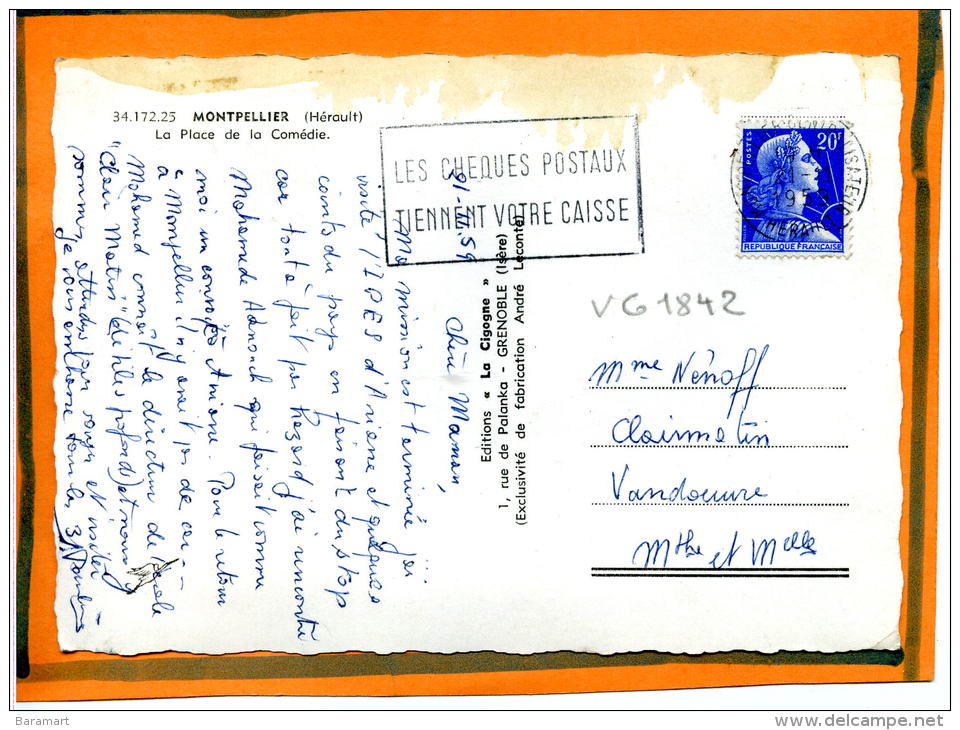 34.172.25 MONTPELLIER (Hérault)
La Place de la Comédie.
LES CHEQUES POSTAUX
TIENNENT VOTRE CAISSE
POSTES
20F
1959
HERAULT
REPUBLIQUE FRANÇAISE
VG1842
Mme Nénoff
Clairmatin
Vandoeuvre
Mthe et Melle
Editions « La Cigogne »
1, rue de Palanka - GRENOBLE (Isère)
(Exclusivité de fabrication André Leconte)
Chère Maman,
Ma mission est terminée j'ai
visité l'IPES d'Aniane et quelques
coins du pays en faisant du stop
car tout à fait par hasard j'ai rencontré
Mahamoude qui faisait comme
moi un convoi Aniane. Pour le retour
à Montpellier il n'y avait pas de car
Mohamed connaît le directeur de
"Clair Matin" et nous
sommes attendus pour souper et visiter
je vous embrasse tous les 3
Baramart
www.delcampe.net